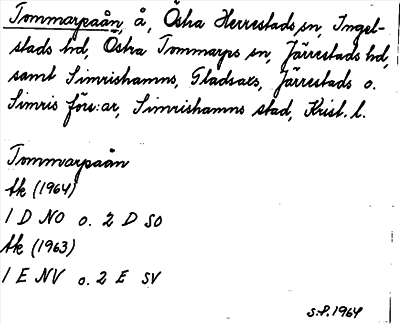 Tommarpaån, å, Östra Herrestads sn, Ingel-
stads hd, Östra Tommarps sn, Järrestads hd,
samt Simrishamns, Gladsax, Järrestads o.
Simris förs:ar, Simrishamns stad, Krist. l.
Tommarpaån
tk (1964)
1 D NO o. 2 D SO
tk (1963)
1 E NV o. 2 E SV
S.P. 1964